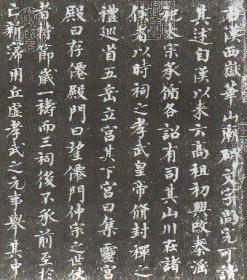 右漢西嶽華山廟碑文字尚完可讀
其述自漢以來云高祖初興改秦淫
祀太宗承循各詔有司其山川在諸
侯者以時祠之孝武皇帝脩封禪之
禮巡省五岳立宮其下宮曰集靈宮
殿曰存僊殿門曰望僊門仲宗之世使
者持節歲一禱而三祠後不承前至於
亡新寖用丘虛孝武之元事舉其中